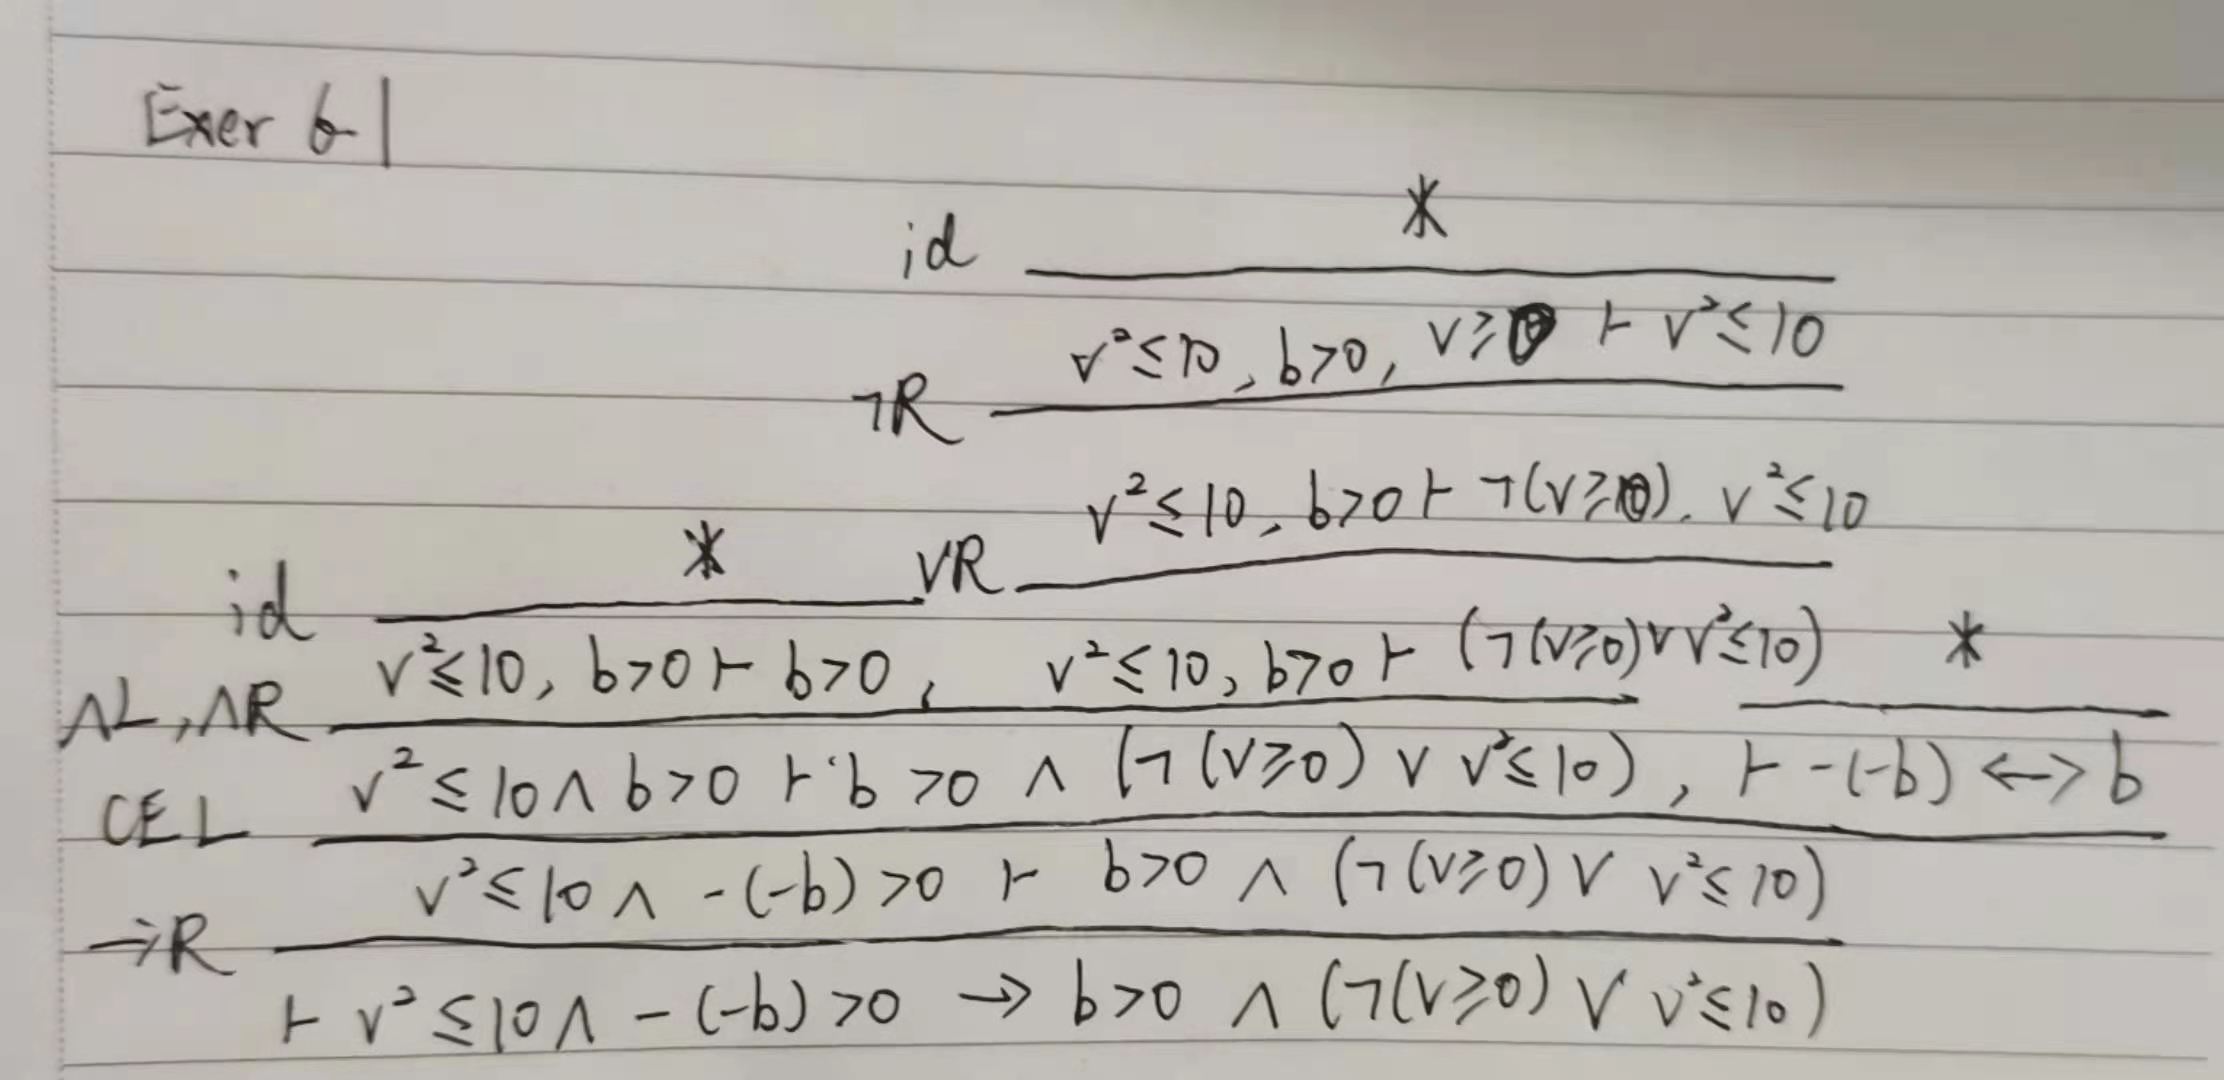 Exer 6-1
*
id
v² ≤ 10, b>0, v ≥ 0 ⊢ v² ≤ 10
¬R
v² ≤ 10, b>0 ⊢ ¬(v ≥ 0), v² ≤ 10
* ∨R
id
v² ≤ 10, b>0 ⊢ b>0, v² ≤ 10, b>0 ⊢ (¬(v ≥ 0) ∨ v² ≤ 10) *
∧L, ∧R
v² ≤ 10 ∧ b>0 ⊢ b>0 ∧ (¬(v ≥ 0) ∨ v² ≤ 10), ⊢ -(-b) ↔ b
CEL
v² ≤ 10 ∧ -(-b) >0 ⊢ b>0 ∧ (¬(v ≥ 0) ∨ v² ≤ 10)
→R
⊢ v² ≤ 10 ∧ -(-b) >0 → b>0 ∧ (¬(v ≥ 0) ∨ v² ≤ 10)